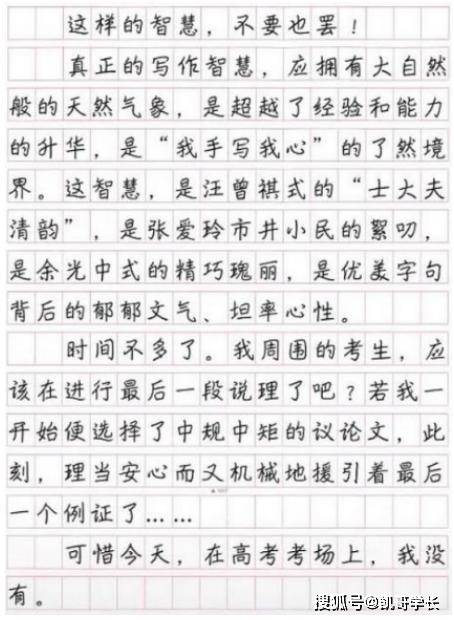 这样的智慧，不要也罢！
真正的写作智慧，应拥有大自然
般的天然气象，是超越了经验和能力
的升华，是“我手写我心”的了然境
界。这智慧，是汪曾祺式的“士大夫
清韵”，是张爱玲市井小民的絮叨，
是余光中式的精巧瑰丽，是优美字句
背后的郁郁文气、坦率心性。
时间不多了。我周围的考生，应
该在进行最后一段说理了吧？若我一
开始便选择了中规中矩的议论文，此
刻，理当安心而又机械地援引着最后
一个例证了……
可惜今天，在高考考场上，我没
有。
搜狐号@凯哥学长